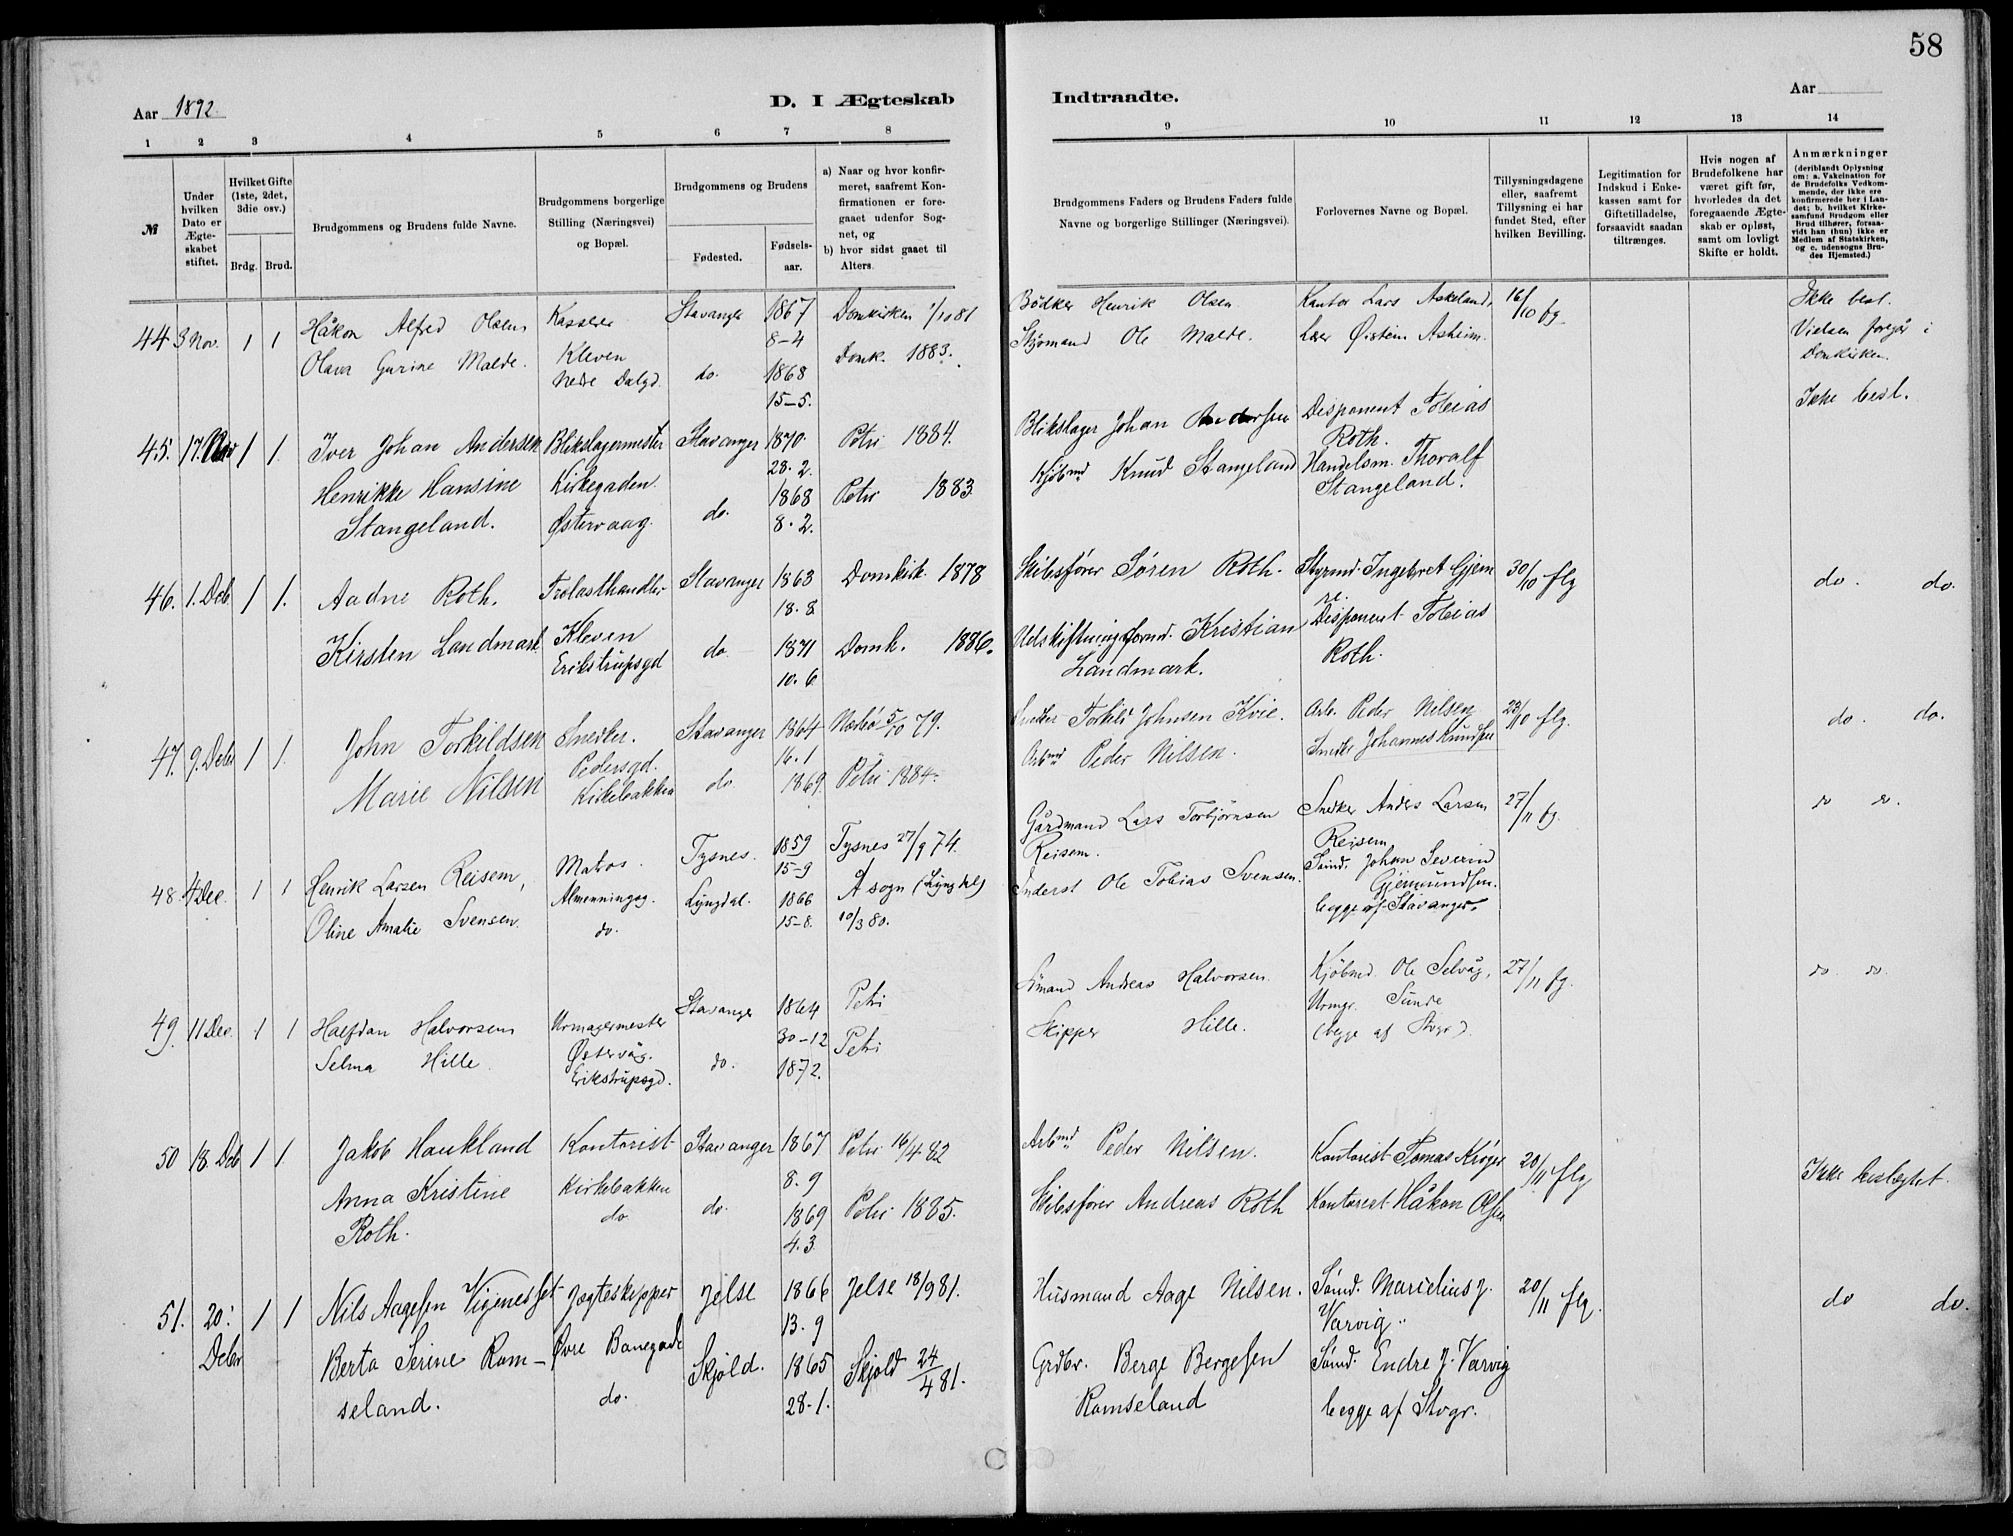 58
Aar 1892.
D. I Ægteskab
Indtraadte.
Aar
1 2 3 4 5 6 7 8
9 10 11 12 13 14
№
Under hvilken Dato er Ægte-skabet stiftet.
Hvilket Gifte (1ste, 2det, 3die osv.)
Brdg. Brud.
Brudgommens og Brudens fulde Navne.
Brudgommens borgerlige Stilling (Næringsvei) og Bopæl.
Brudgommens og Brudens
Fødested.
Fødsels-aar.
a) Naar og hvor konfir-meret, saafremt Kon-firmationen er fore-gaaet udenfor Sog-net, og
b) hvor sidst gaaet til Alters.
Brudgommens Faders og Brudens Faders fulde Navne og borgerlige Stillinger (Næringsvei).
Forlovernes Navne og Bopæl.
Tillysningsdagene eller, saafremt Tillysning ei har fundet Sted, efter hvilken Bevilling.
Legitimation for Indskud i Enke-kassen samt for Giftetilladelse, forsaavidt saadan tiltrænges.
Hvis nogen af Brudefolkene har været gift før, hvorledes da det foregaaende Ægte-skab er opløst, samt om lovligt Skifte er holdt.
Anmærkninger
(deriblandt Oplysning om: a. Vakcination for de Brudefolks Vedkom-mende, der ikke ere konfirmerede her i Lan-det; b. hvilket Kirke-samfund Brudgom eller Brud tilhører, forsaa-vidt han (hun) ikke er Medlem af Statskirken, og c. udensogns Bru-des Hjemsted.)
44 3 Nov. 1 1 Håkon Alfred Olsen Kasserer Stavanger 1867 Domkirken 1/10 81
8-4
Olava Gurine Malde. Kleven
Nedre Dalgd. do. 1868 Domk. 1883.
15-5.
Bödker Henrik Olsen Kantor Lars Askeland, 16/10 fg. Ikke besl.
Skjomand Ole Malde. Lærer Øistein Asheim. Vielsen foregår i
Domkirken.
45. 17. Nov 1 1. Iver Johan Andersen Blikslagermester Stavanger 1870. Petri 1884.
28. 2.
Henrikke Hansine Kirkegaden 1868 Petri 1883
Stangeland. Østervaag. do. 8. 2.
Blikslager Johan Andersen Disponent Tobias Ikke besl.
Roth.
Kjøbmd Knud Stangeland Handelsm. Thoralf
Stangeland.
46. 1. Deb 1 1. Aadne Roth. Trælasthandler Stavanger 1863 Domkirk. 1878
18. 8.
Kirsten Landmark Kleven
Erikstrupsgd do 1871 Domk. 1886.
10. 6
Skibsfører Søren Roth. Styrmd. Ingebret Gjem 30/10 flg do. do.
re.
Udskiftningsformd. Kristian Disponent Tobias
Landmark. Roth.
47. 9. Debr 1 1. John Torkildsen Snedker. Stavanger 1864 Nærbø 5/10 79.
Pedersgd. 16. 1
Marie Nilsen Kirkebakken do 1869 Petri 1884.
Snedker Torkild Johnsen Kvie. Arb. Peder Nilsen 23/10 flg. do. do.
Arbmd Peder Nilsen. Snedker Johannes Knudsen
48. 4 Dec. 1 1 Henrik Larsen Reisem, Matros Tysnes. 1859 Tysnes 27/9 74.
15-9
Oline Amalie Svensen. Almenningsg. Lyngdal. 1866 Å sogn (Lyngdal)
do. 15-8. 10/3 80.
Gårdmand Lars Torbjørnsen Snedker Anders Larsen 27/11 fg. do do.
Reisem. Reisem
Inderst Ole Tobias Svensen. Sømd. Johan Severin
Gjermundsen.
begge af Stavanger.
49. 11 Dec. 1 1 Halfdan Halvorsen Urmagermester Stavanger 1864 Petri
Østervåg. 30-12
Selma Hille. Erikstrupsgd. do. 1872. Petri
Sømand Andreas Halvorsen. Kjöbmd. Ole Selvåg, 27/11 fg. do do.
Skipper Hille. Urmgr. Sunde
(begge af Stvgr.)
50 18. Deb 1 1. Jakob Haukland Kontorist Stavanger 1867 Petri 16/4 82
8. 9
Anna Kristine Kirkebakken
Roth. do do. 1869 Petri 1885.
4. 3
Arbmd Peder Nilsen. Kontorist Tomas Krøger 20/11 flg Ikke beslægtet.
Skibsfører Andreas Roth Kontorist Håkon Olsen
51. 20: Debr 1 1 Nils Aagesen Vigenesset Jægteskipper Jelse 1866 Jelse 18/9 81.
13. 9
Berta Serine Ram- Øvre Banegade Skjold. 1865 Skjold 24/4 81.
seland. do. 28-1.
Husmand Aage Nilsen. Sømd. Marselius J. 20/11 flg. do do.
Varvig.
Grdbr. Berge Bergesen Sømd. Endre J. Varvig
Ramseland begge af Stvgr.